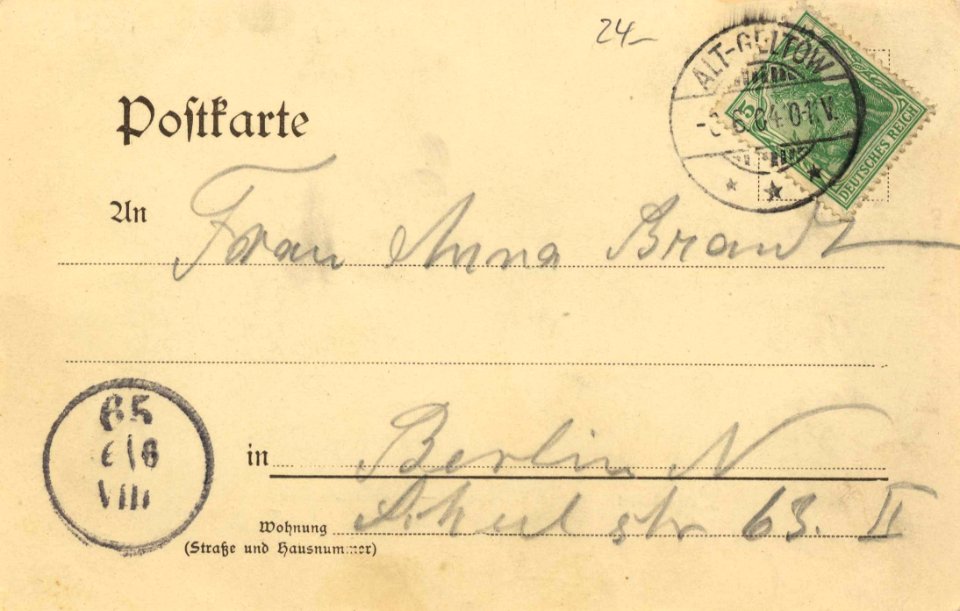 24-
ALT-GELTOW
6 04 10-11 V.
5
DEUTSCHES REICH
Poſtkarte
An Frau Anna Brandt
65
6/6
VIII
in Berlin N
Wohnung str 63. II
(Straße und Hausnummer)